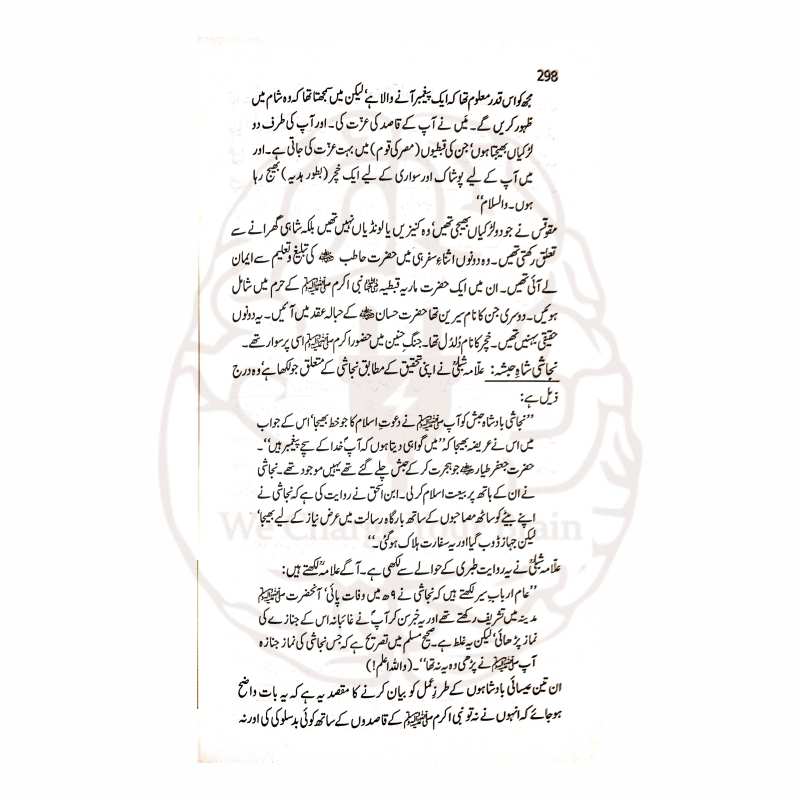 298
مجھ کو اس قدر معلوم تھا کہ ایک پیغمبر آنے والا ہے' لیکن میں سمجھتا تھا کہ وہ شام میں
ظہور کریں گے۔ میں نے آپ کے قاصد کی عزّت کی۔ اور آپ کی طرف دو
لڑکیاں بھیجتا ہوں' جن کی قبطیوں (مصر کی قوم) میں بہت عزّت کی جاتی ہے۔ اور
میں آپ کے لیے پوشاک اور سواری کے لیے ایک خچر (بطور ہدیہ) بھیج رہا
ہوں۔ والسلام''
مقوقس نے جو دو لڑکیاں بھیجی تھیں' وہ کنیزیں یا لونڈیاں نہیں تھیں بلکہ شاہی گھرانے سے
تعلق رکھتی تھیں۔ وہ دونوں اثناءِ سفر ہی میں حضرت حاطب ؓ کی تبلیغ و تعلیم سے ایمان
لے آئی تھیں۔ ان میں ایک حضرت ماریہ قبطیہ ؓ نبی اکرم ﷺ کے حرم میں شامل
ہوئیں۔ دوسری جن کا نام سیرین تھا حضرت حسان ؓ کے حبالہ عقد میں آئیں۔ یہ دونوں
حقیقی بہنیں تھیں۔ خچر کا نام دُلدُل تھا۔ جنگِ حنین میں حضور اکرم ﷺ اسی پر سوار تھے۔
نجاشی شاہِ حبشہ: علّامہ شبلیؒ نے اپنی تحقیق کے مطابق نجاشی کے متعلق جو لکھا ہے' وہ درج
ذیل ہے:
''نجاشی بادشاہ حبش کو آپ ﷺ نے دعوتِ اسلام کا جو خط بھیجا' اس کے جواب
میں اس نے عریضہ بھیجا کہ ''میں گواہی دیتا ہوں کہ آپؐ خدا کے سچے پیغمبر ہیں''۔
حضرت جعفر طیار ؓ جو ہجرت کر کے حبش چلے گئے تھے یہیں موجود تھے۔ نجاشی
نے ان کے ہاتھ پر بیعت اسلام کر لی۔ ابن اسحٰق نے روایت کی ہے کہ نجاشی نے
اپنے بیٹے کو ساٹھ مصاحبوں کے ساتھ بارگاہ رسالت میں عرض نیاز کے لیے بھیجا'
لیکن جہاز ڈوب گیا اور یہ سفارت ہلاک ہو گئی۔''
علّامہ شبلیؒ نے یہ روایت طبری کے حوالے سے لکھی ہے۔ آگے علامہؒ لکھتے ہیں:
''عام اربابِ سیر لکھتے ہیں کہ نجاشی نے ۹ھ میں وفات پائی' آنحضرت ﷺ
مدینہ میں تشریف رکھتے تھے اور یہ خبر سن کر آپؐ نے غائبانہ اس کے جنازے کی
نماز پڑھائی' لیکن یہ غلط ہے۔ صحیح مسلم میں تصریح ہے کہ جس نجاشی کی نماز جنازہ
آپ ﷺ نے پڑھی وہ یہ نہ تھا''۔ (واللہ اعلم!)
ان تین عیسائی بادشاہوں کے طرزِ عمل کو بیان کرنے کا مقصد یہ ہے کہ یہ بات واضح
ہو جائے کہ انہوں نے نہ تو نبی اکرم ﷺ کے قاصدوں کے ساتھ کوئی بدسلوکی کی اور نہ